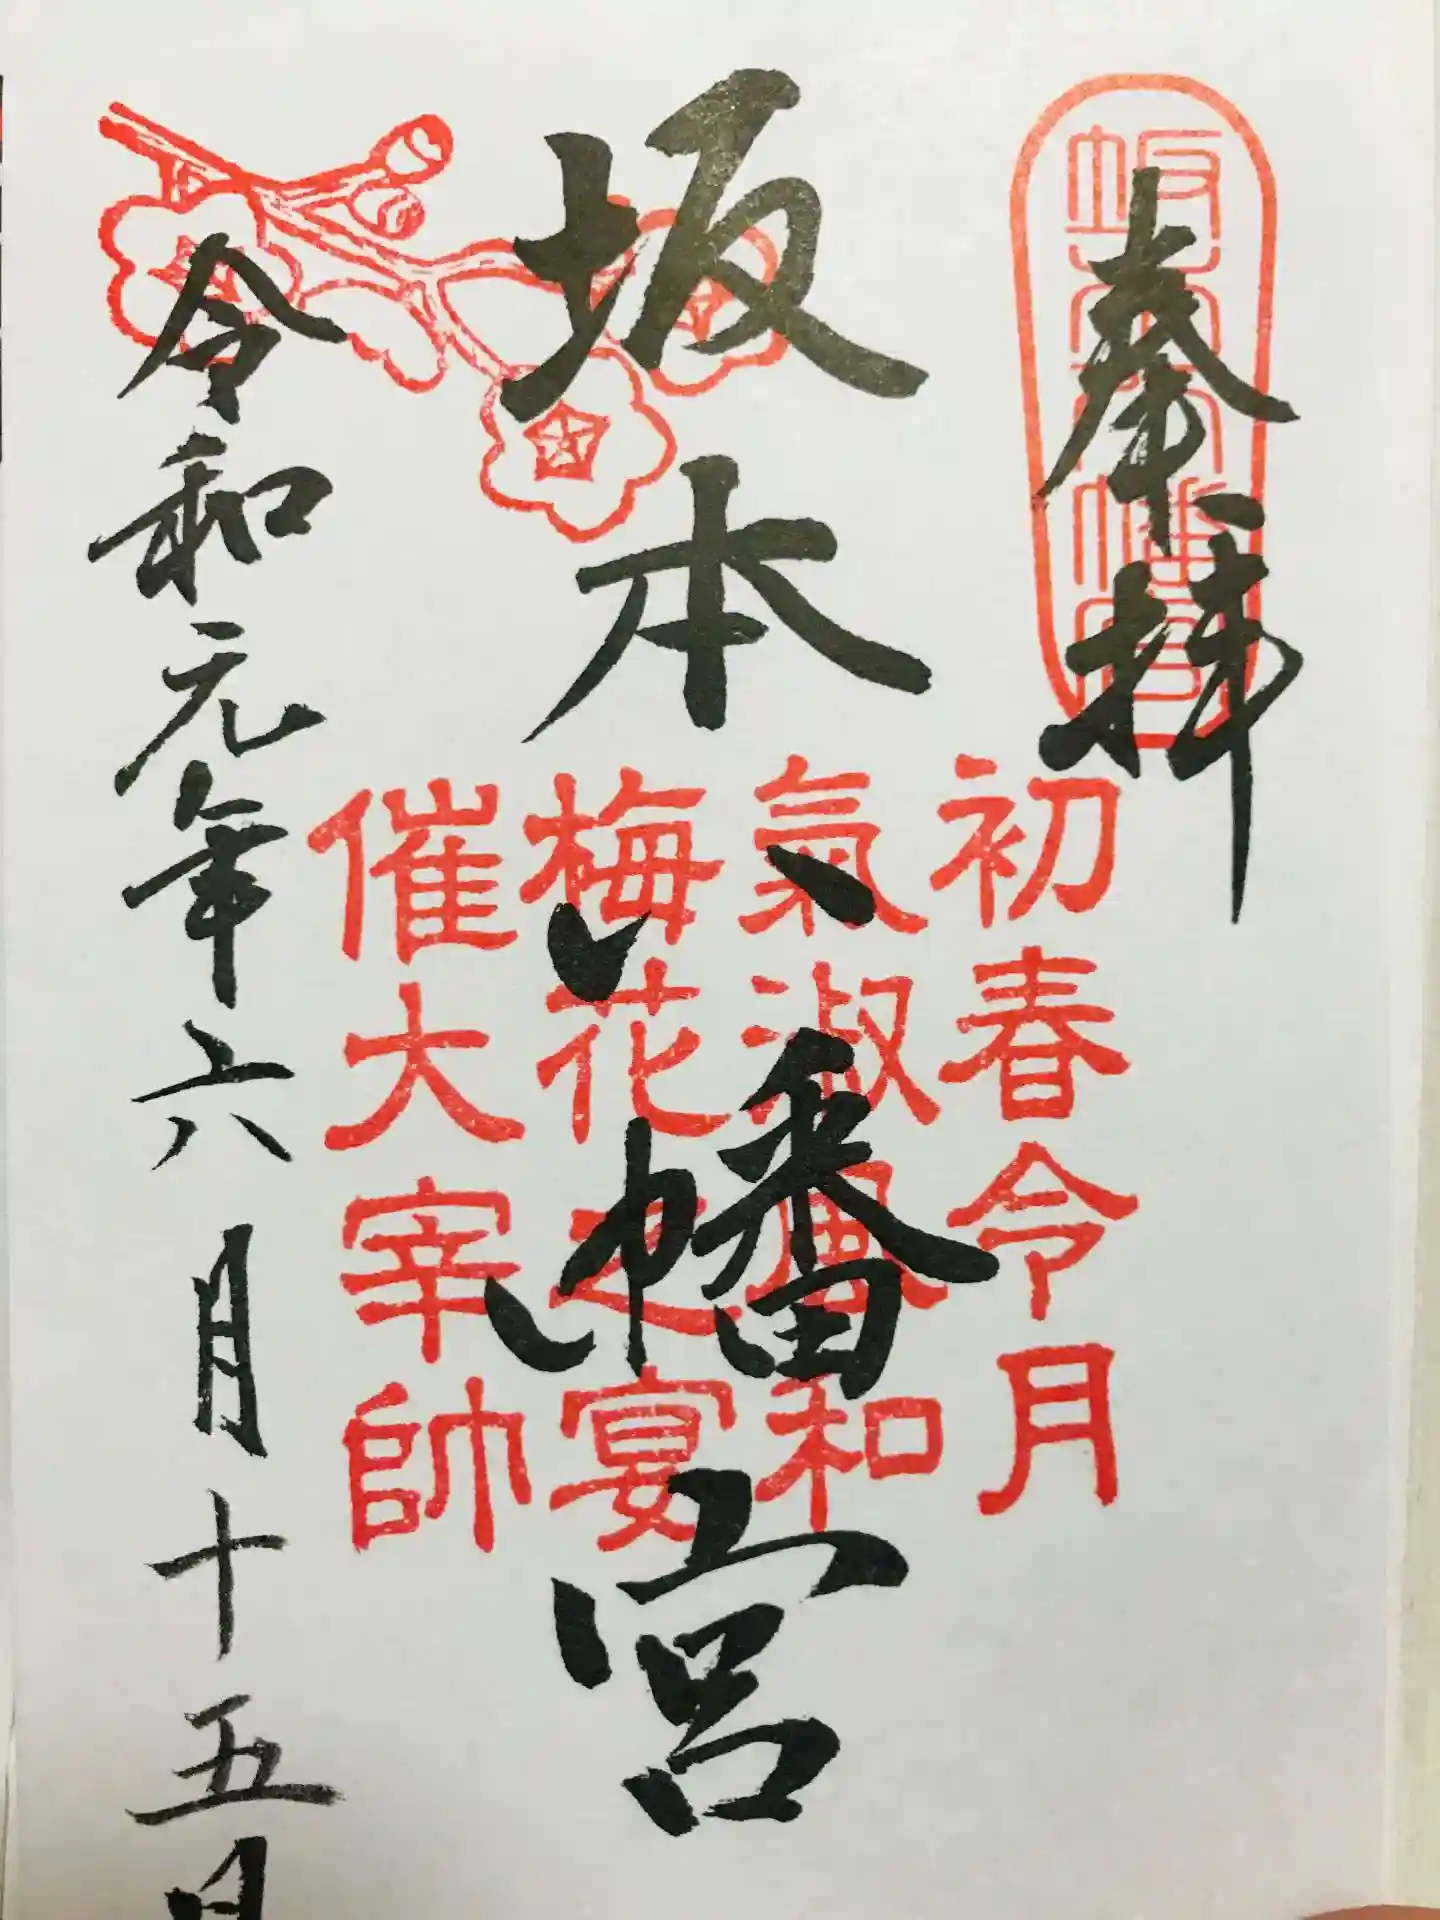 奉拝
坂本八幡宮
初春令月
氣淑風和
梅花之宴
催大宰帥
令和元年六月十五日